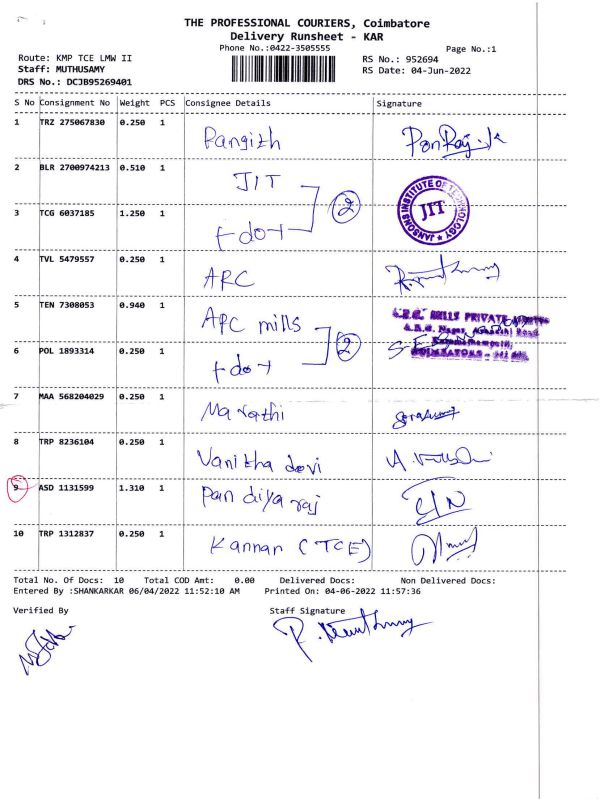 THE PROFESSIONAL COURIERS, Coimbatore
Delivery Runsheet - KAR
Phone No.:0422-3505555
Page No.:1
Route: KMP TCE LMW II
RS No.: 952694
Staff: MUTHUSAMY
RS Date: 04-Jun-2022
DRS No.: DCJB95269401
S No Consignment No Weight PCS Consignee Details Signature
1 TRZ 275067830 0.250 1 Rangith
2 BLR 2700974213 0.510 1 JIT
2
JANSONS INSTITUTE OF TECHNOLOGY
JIT
3 TCG 6037185 1.250 1 t dot
4 TVL 5479557 0.250 1 ARC
5 TEN 7308053 0.940 1 APC mills
2
MILLS PRIVATE
6 POL 1893314 0.250 1 t dot
COIMBATORE
7 MAA 568204029 0.250 1 Marathi
8 TRP 8236104 0.250 1 Vanitha devi
9 ASD 1131599 1.310 1 Pandiyaraj
10 TRP 1312837 0.250 1 Kannan (TCE)
Total No. Of Docs: 10 Total COD Amt: 0.00 Delivered Docs: Non Delivered Docs:
Entered By :SHANKARKAR 06/04/2022 11:52:10 AM Printed On: 04-06-2022 11:57:36
Verified By Staff Signature